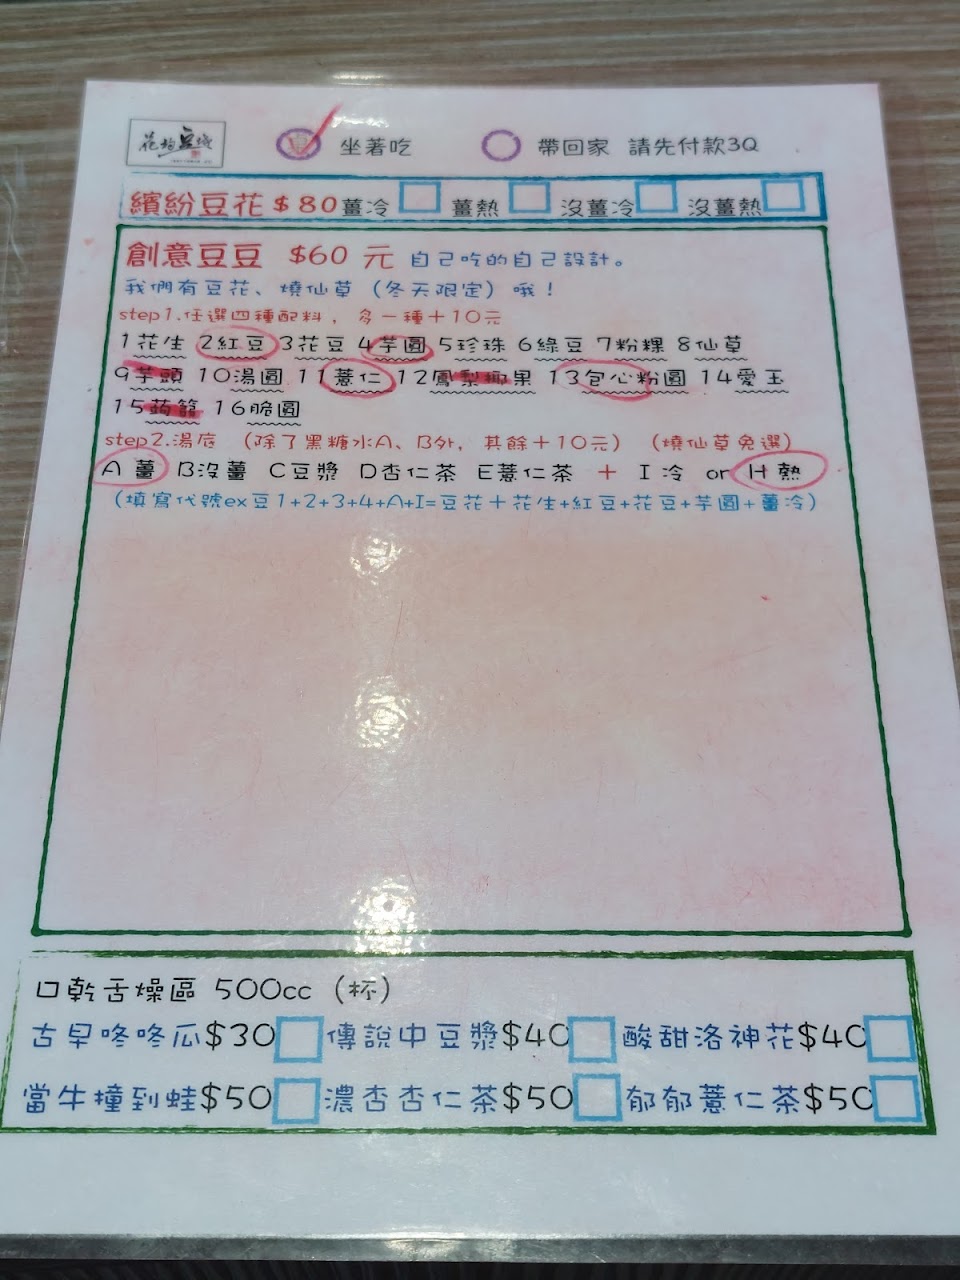 花塢豆城
坐著吃 帶回家 請先付款3Q
繽紛豆花$80 薑冷 薑熱 沒薑冷 沒薑熱
創意豆豆 $60 元 自己吃的自己設計。
我們有豆花、燒仙草（冬天限定）哦！
step1.任選四種配料，多一種+10元
1花生 2紅豆 3花豆 4芋圓 5珍珠 6綠豆 7粉粿 8仙草
9芋頭 10湯圓 11薏仁 12鳳梨椰果 13包心粉圓 14愛玉
15蒟蒻 16脆圓
step2.湯底 （除了黑糖水A、B外，其餘+10元）（燒仙草免選）
A薑 B沒薑 C豆漿 D杏仁茶 E薏仁茶 + I冷 or H熱
（填寫代號ex豆1+2+3+4+A+I=豆花+花生+紅豆+花豆+芋圓+薑冷）
口乾舌燥區 500cc （杯）
古早咚咚瓜$30 傳說中豆漿$40 酸甜洛神花$40
當牛撞到蛙$50 濃杏杏仁茶$50 郁郁薏仁茶$50